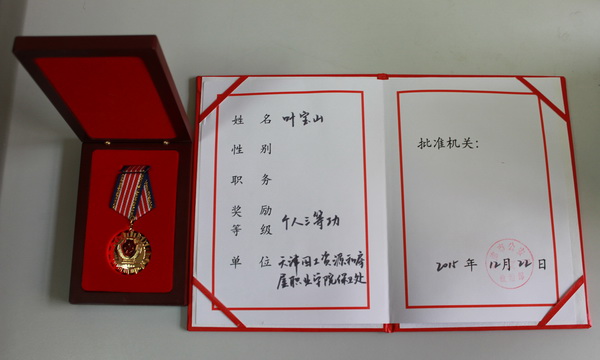 姓名 叶宝山
性别
职务
奖励等级 个人三等功
单位 天津国土资源和房
屋职业学院保卫处
批准机关:
2015年12月22日